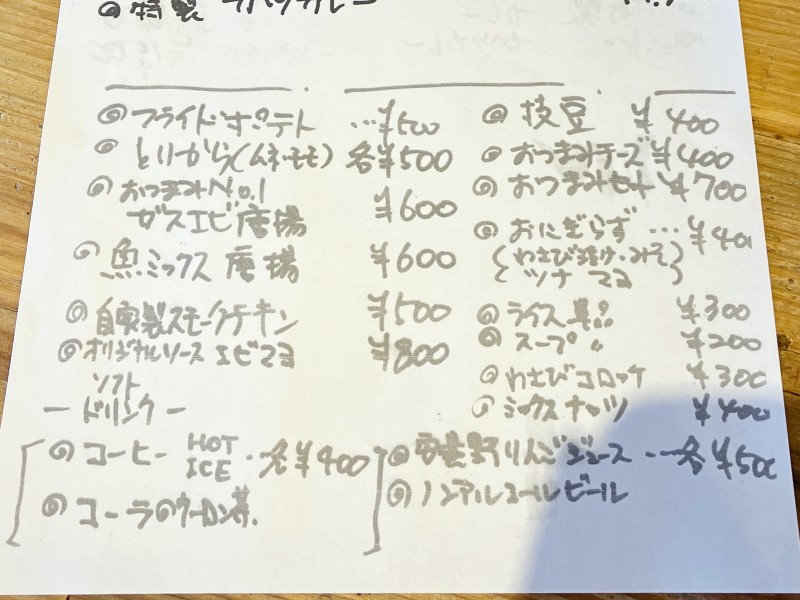 ◎特製
◎フライドポテト …¥500
◎とりから(ムネ・モモ) 各¥500
◎おつまみNo.1
ガスエビ唐揚 ¥600
◎魚ミックス唐揚 ¥600
◎自家製スモークチキン ¥500
◎オリジナルソースエビマヨ ¥800
◎枝豆 ¥400
◎おつまみチーズ ¥400
◎おつまみセット ¥700
◎おにぎらず …¥400
(わさび漬け・みそ
ツナマヨ)
◎ライス単品 ¥300
◎スープ 〃 ¥200
◎わさびコロッケ ¥300
◎ミックスナッツ ¥400
ソフト
ードリンクー
◎コーヒー HOT
ICE ・各¥400
◎コーラ◎ウーロン茶.
◎安曇野りんごジュース ・・各¥500
◎ノンアルコールビール